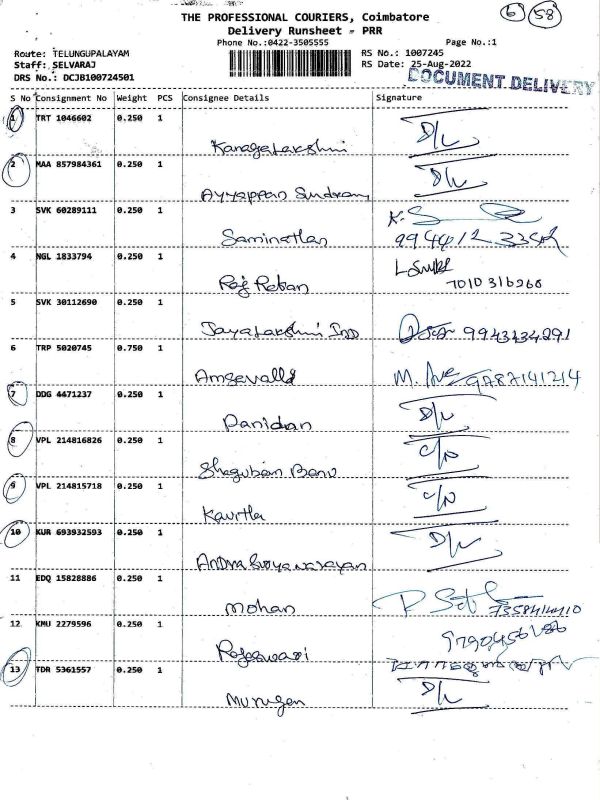 6 58
THE PROFESSIONAL COURIERS, Coimbatore
Delivery Runsheet - PRR
Phone No.:0422-3505555 Page No.:1
Route: TELUNGUPALAYAM RS No.: 1007245
Staff: SELVARAJ RS Date: 25-Aug-2022
DRS No.: DCJB100724501
DOCUMENT DELIVERY
S No Consignment No Weight PCS Consignee Details Signature
1 TRT 1046602 0.250 1
Kanagalakshmi D/L
2 MAA 857984361 0.250 1
Ayyappan Sundram D/L
3 SVK 60289111 0.250 1
Saminathan
4 NGL 1833794 0.250 1
Raj Ratan 7010316268
5 SVK 30112690 0.250 1
Jayalakshmi Ind 9943434291
6 TRP 5020745 0.750 1
Amsevalli 9787141214
7 DDG 4471237 0.250 1
Panidran D/L
8 VPL 214816826 0.250 1
Shagubam Banu C/N
9 VPL 214815718 0.250 1
Kavitha C/N
10 KUR 693932593 0.250 1
D/L
11 EDQ 15828886 0.250 1
Mohan
12 KMU 2279596 0.250 1
Rajeswari
13 TDR 5361557 0.250 1
Murugan D/L